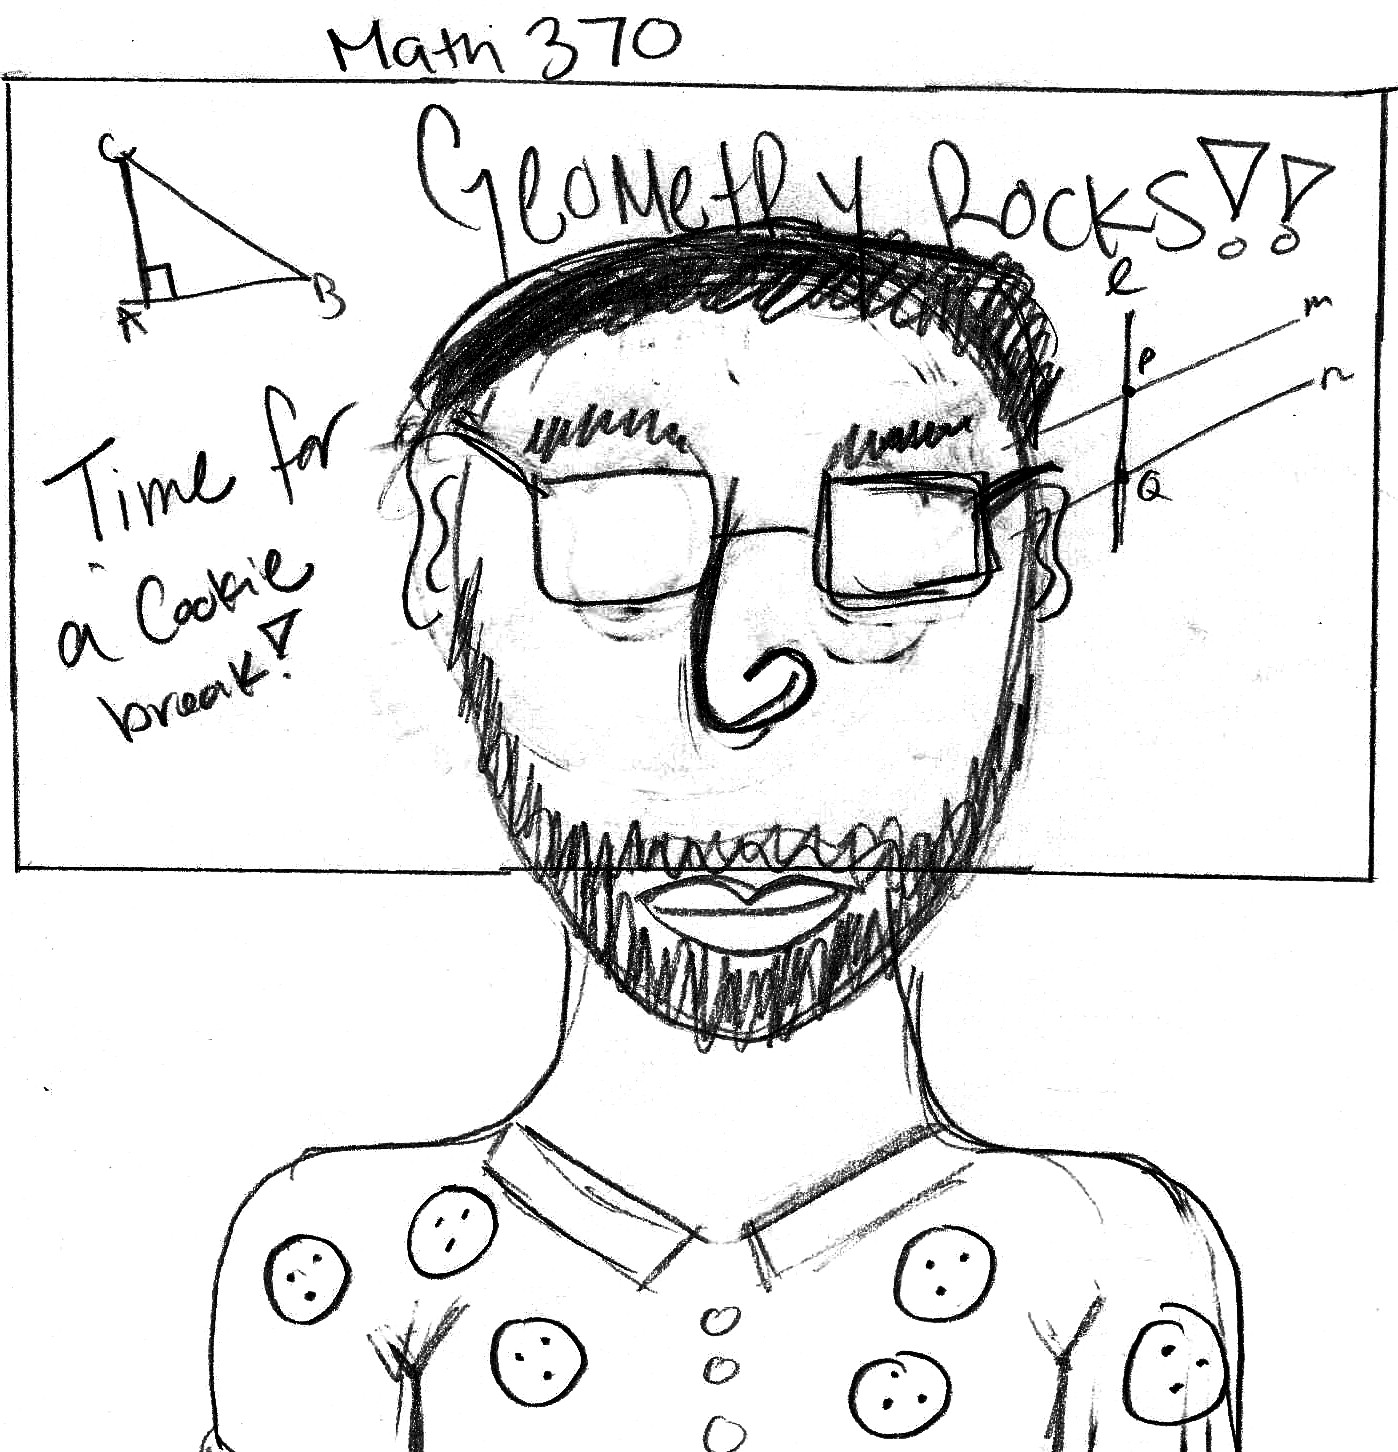 Math 370
Geometry Rocks!!
C
A
B
l
m
P
n
Q
Time for
a Cookie
break!